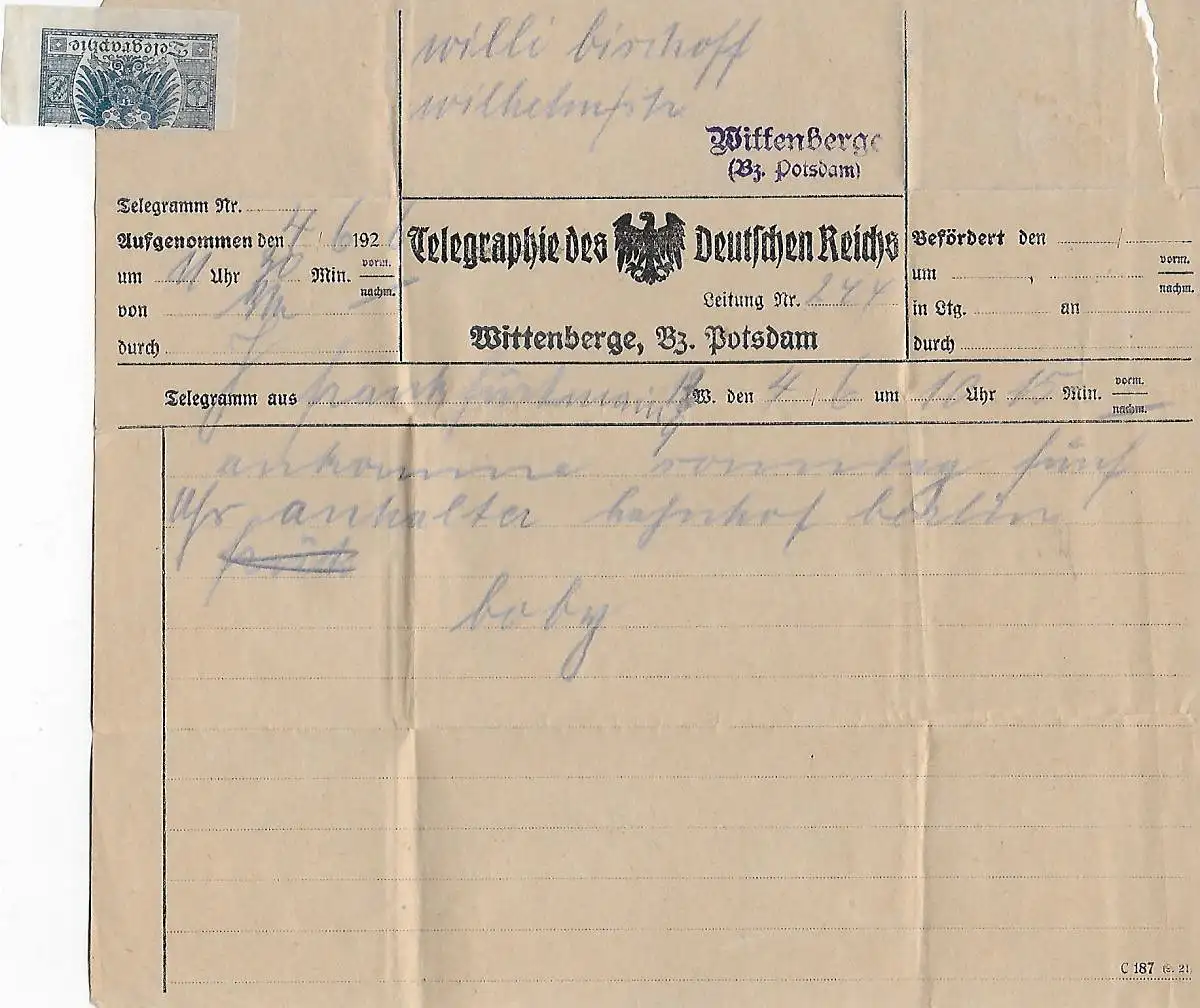 Telegraphie
willi bischoff
wilhelmstr
Wittenberge
(Bz. Potsdam)
Telegramm Nr.
Aufgenommen den 4/6 192 6
um 11 Uhr 30 Min. vorm. nachm.
von
durch
Telegraphie des Deutschen Reichs
Leitung Nr. 244
Wittenberge, Bz. Potsdam
Befördert den /
um , vorm. nachm.
in Ltg. an
durch
Telegramm aus frankfurtmain W. den 4/6 um 10 Uhr 15 Min. vorm. nachm.
ankomme sonntag fünf
Uhr anhalter bahnhof berlin
boby
C 187